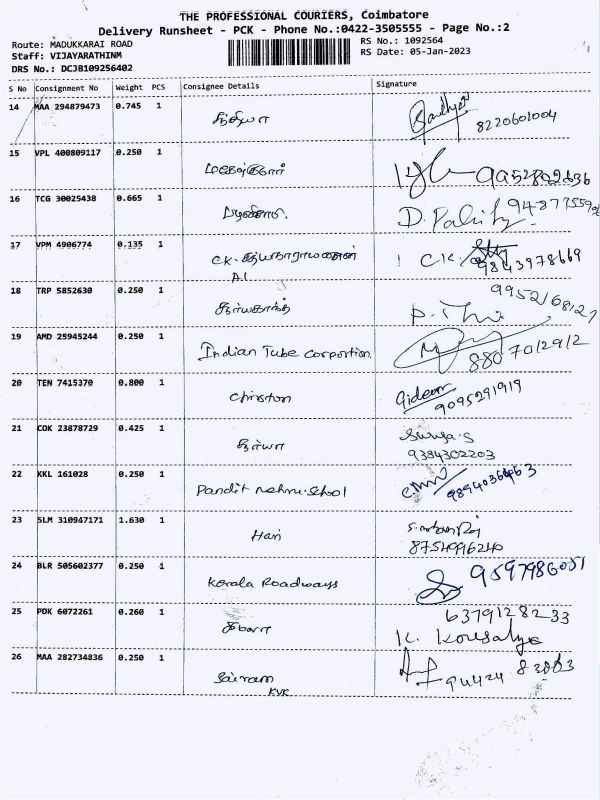 THE PROFESSIONAL COURIERS, Coimbatore
Delivery Runsheet - PCK - Phone No.:0422-3505555 - Page No.:2
Route: MADUKKARAI ROAD
Staff: VIJAYARATHINM
DRS No.: DCJB109256402
RS No.: 1092564
RS Date: 05-Jan-2023
S No Consignment No Weight PCS Consignee Details Signature
14 MAA 294879473 0.745 1
8220601004
15 VPL 400809117 0.250 1
16 TCG 30025438 0.665 1
17 VPM 4906774 0.135 1 CK.
9843978669
18 TRP 5852630 0.250 1
19 AMD 25945244 0.250 1 Indian Tube Corportion.
20 TEN 7415370 0.800 1 Gideon
9095291919
21 COK 23878729 0.425 1 சூர்யா Surya.S
9384302203
22 KKL 161028 0.250 1 Pandit Nehru School
23 SLM 310947171 1.630 1 Hari
8754996240
24 BLR 505602377 0.250 1 Kerala Roadways 9597986051
25 PDK 6072261 0.260 1 6379128233
K. Kousalya
26 MAA 282734836 0.250 1 Sairam
KVK